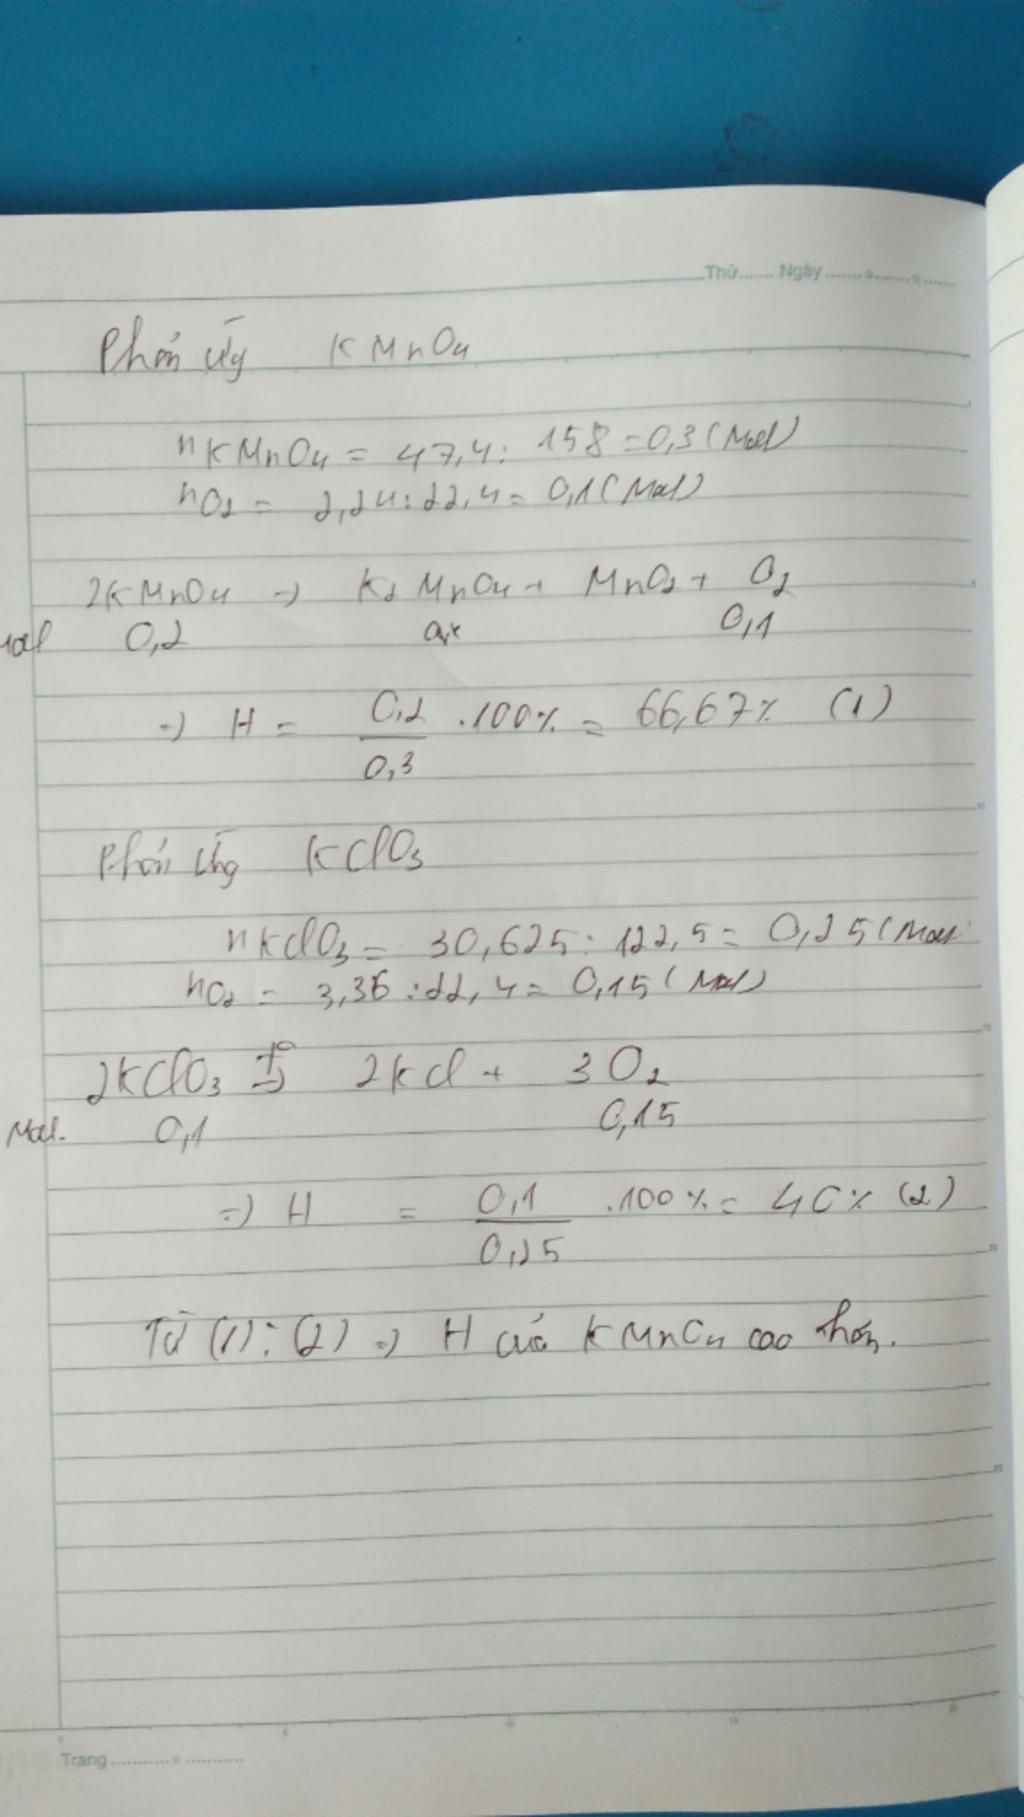 Thứ....... Ngày.......
Phản ứng KMnO4
nKMnO4 = 47,4 : 158 = 0,3 (Mol)
nO2 = 2,24 : 22,4 = 0,1 (Mol)
2KMnO4 → K2MnO4 + MnO2 + O2
mol 0,2 0,1
=) H = 0,2/0,3 .100% = 66,67% (1)
Phản ứng KClO3
nKClO3 = 30,625 : 122,5 = 0,25 (Mol
nO2 = 3,36 : 22,4 = 0,15 (Mol)
2KClO3 t° → 2KCl + 3O2
Mol. 0,1 0,15
=) H = 0,1/0,25 .100% = 40% (2)
Từ (1) : (2) =) H của KMnO4 cao hơn.
Trang